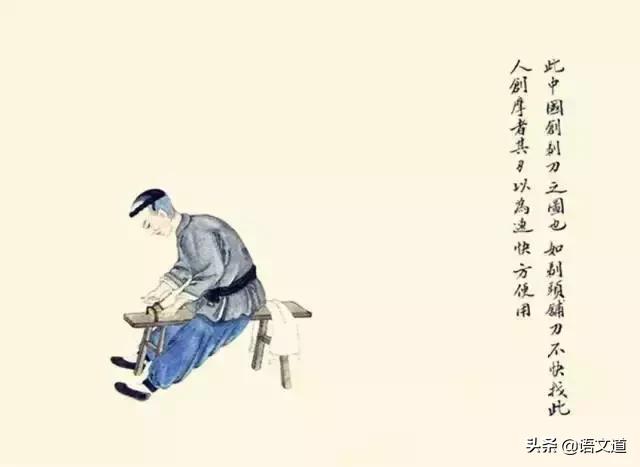 此中國創剃刀之圖也如剃頭鋪刀不快找此
人創摩者其刃以為速快方便用
头条@语文道